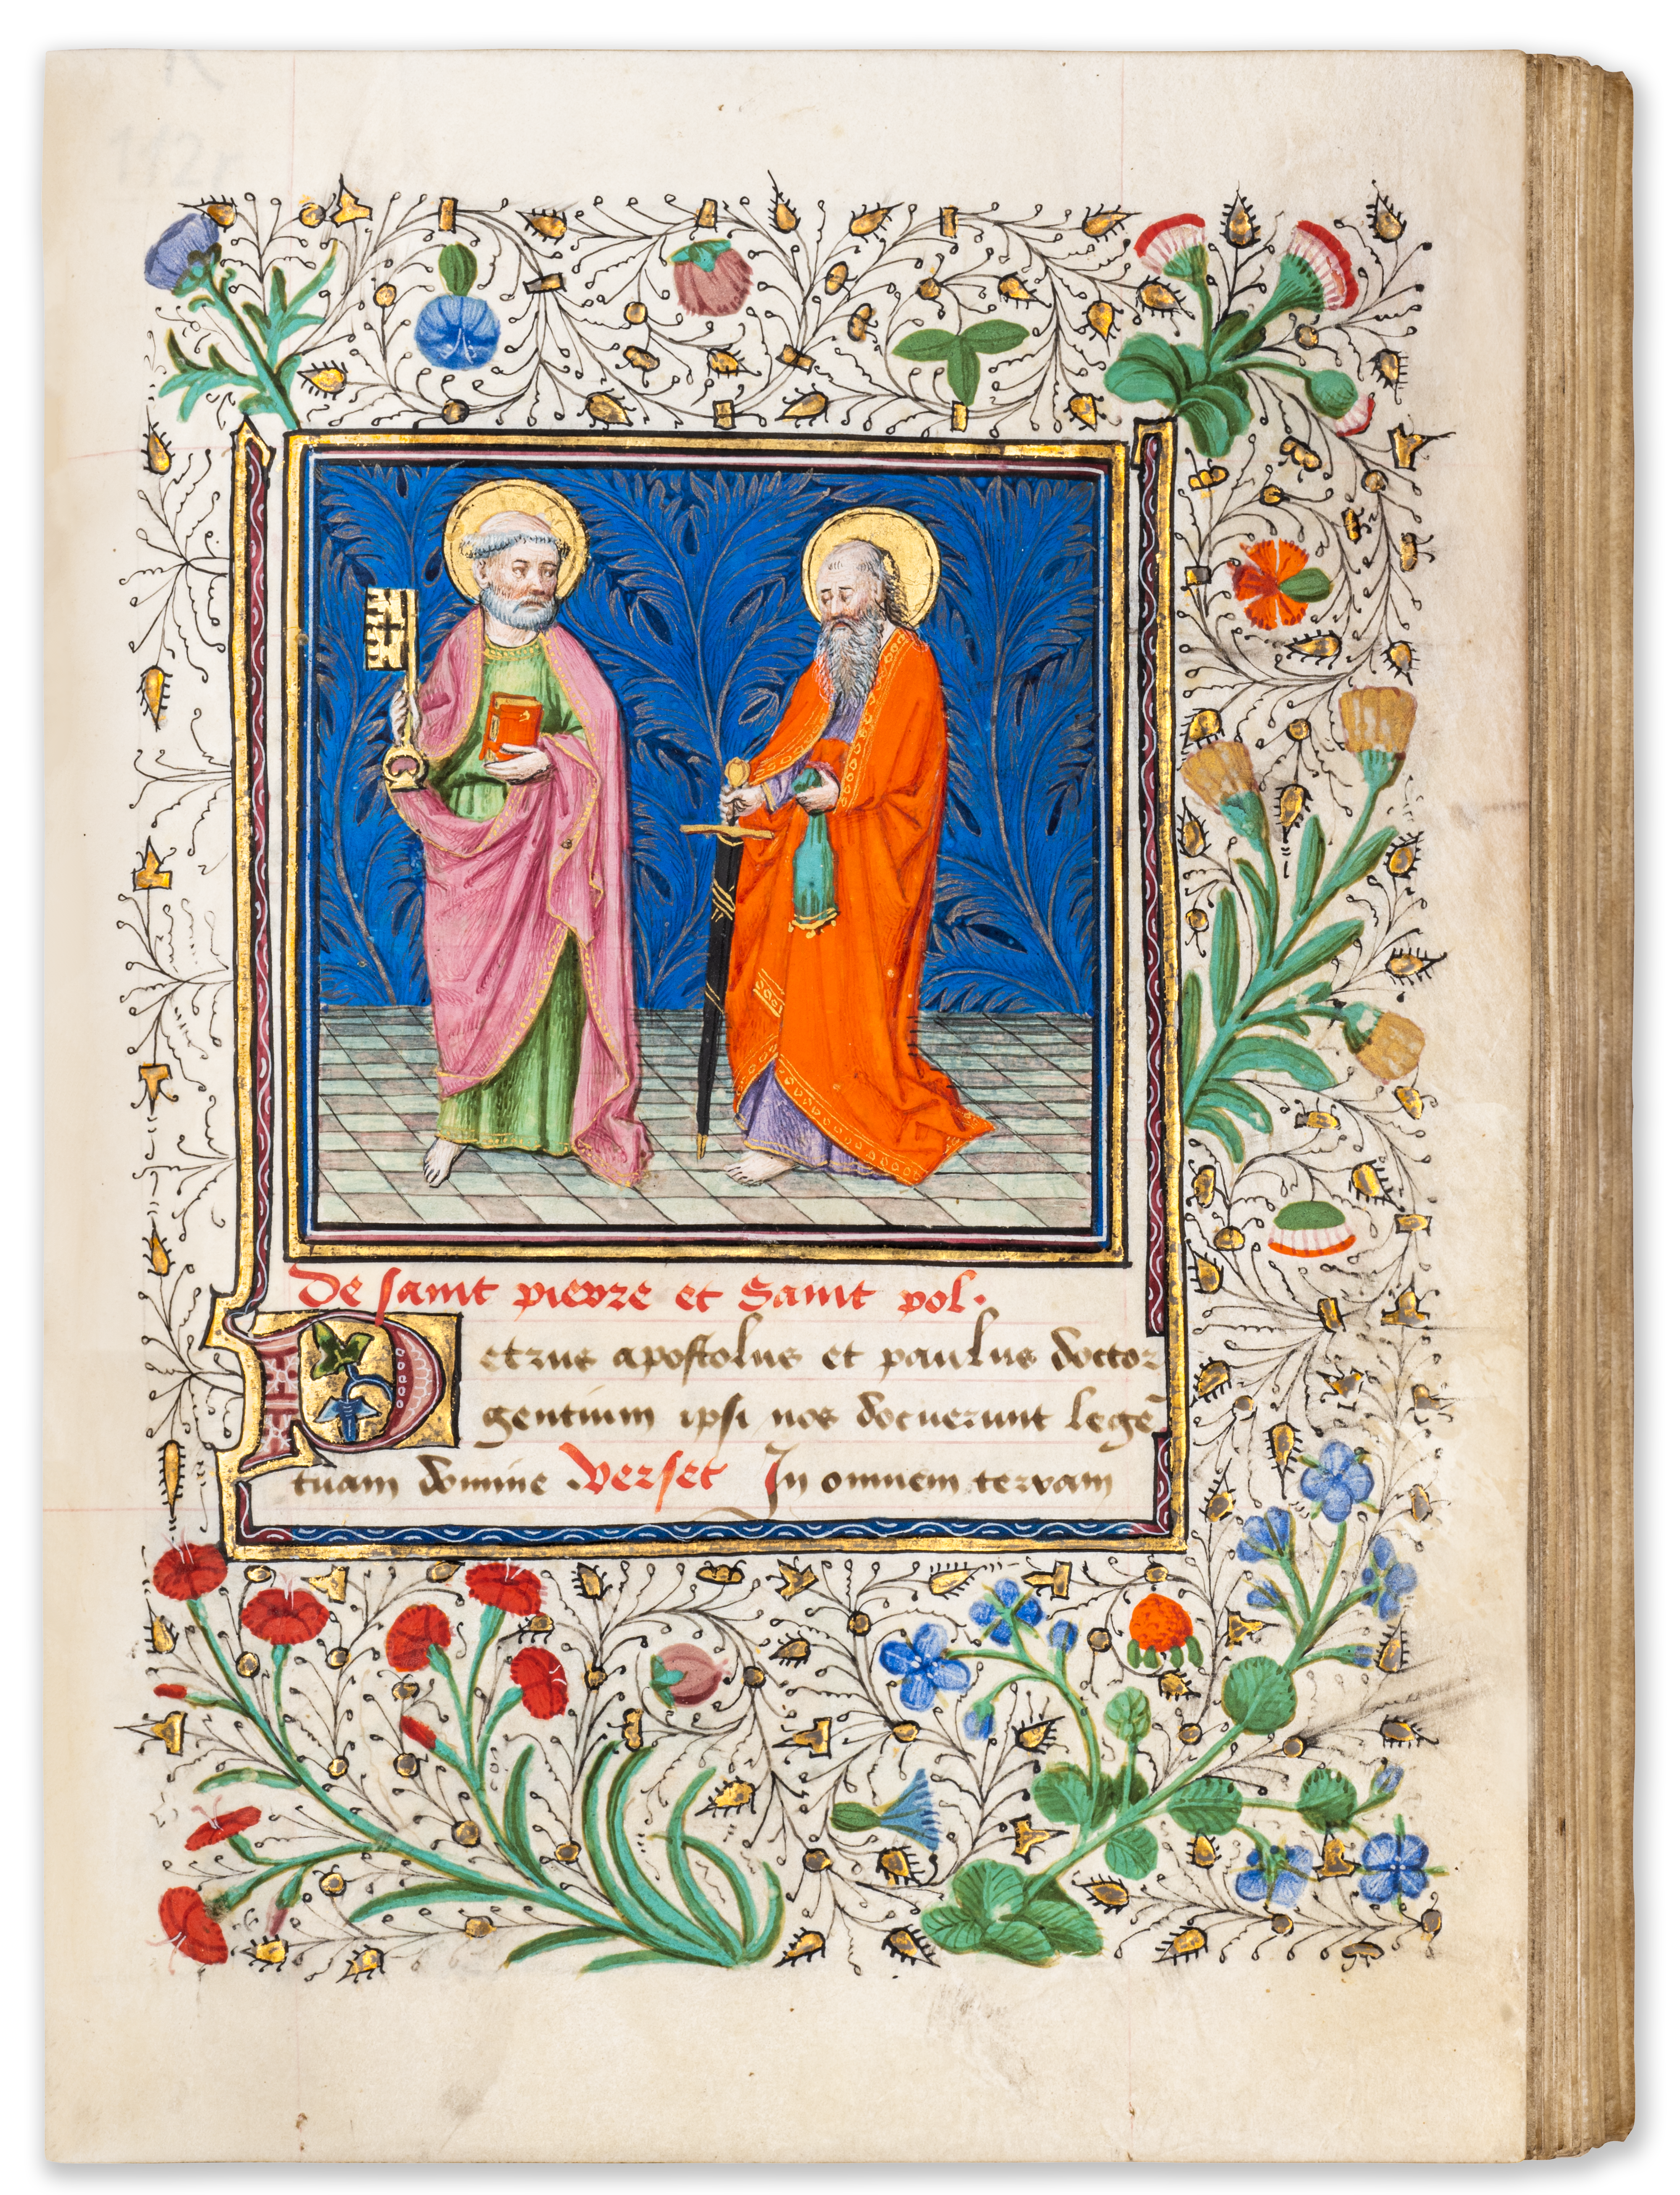 De saint pierre et Saint pol.
Petrus apostolus et paulus doctor
gentium ipsi nos docuerunt legē
tuam domine. Verset In omnem terram